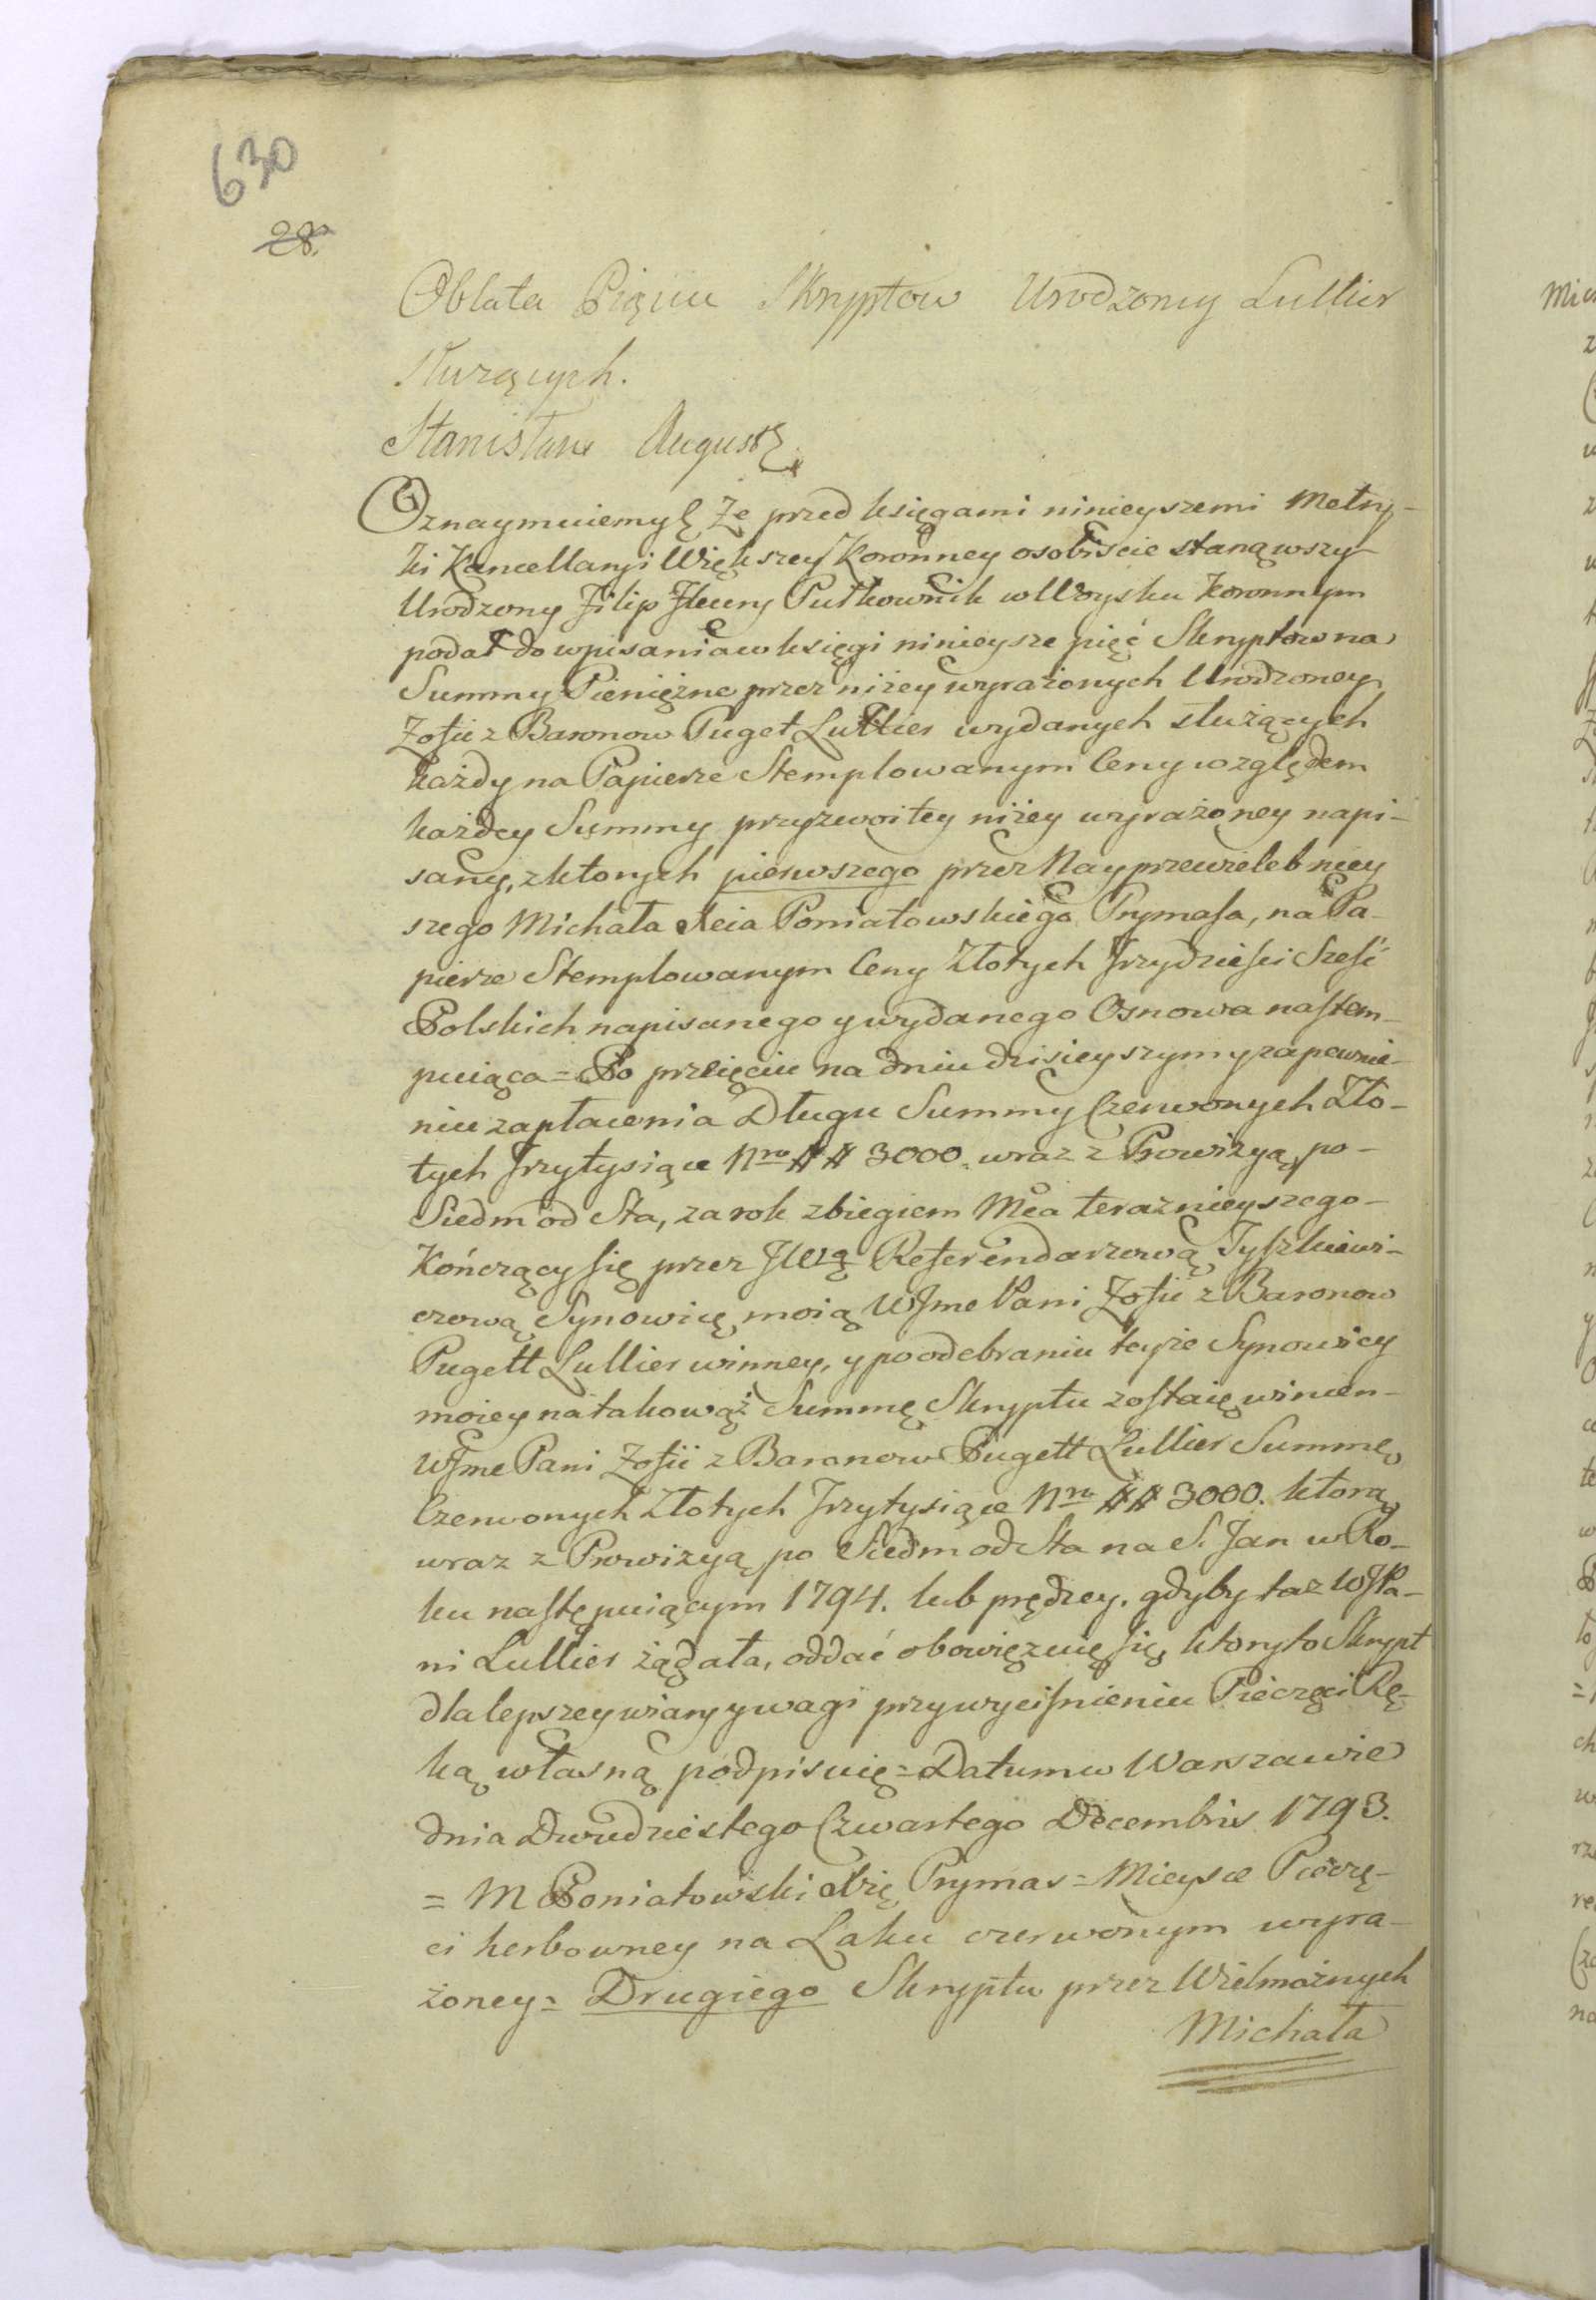 630
28.
Oblata Pięciu Skryptow Urodzoney Lullier
służących.
Stanisław August &
Oznaymuiemy & Że przed księgami ninieyszemi Metry-
ki Kancellaryi Większey Koronney osobiscie stanąwszy
Urodzony Filip Pułkownik w Woysku Koronnym
podał do wpisania w księgi ninieysze pięć Skryptow na
Summy Pieniężne przez niżey wyrażonych Urodzoney
Zofii z Baronow Puget Lullier wydanych służących
każdy na Papierze Stemplowanym Ceny względem
każdey Summy przyzwoitey niżey wyrażoney napi-
sany, z ktorych pierwszego przez Nayprzewielebniey
szego Michała Xcia Poniatowskiego Prymasa, na Pa-
pierze Stemplowanym Ceny Złotych Trzydzieści Sześć
Polskich napisanego y wydanego Osnowa nastem-
puiąca = Po przeięciu na dniu dzisieyszym y zapewnie-
niu zapłacenia Długu Summy Czerwonych Zło-
tych Trzytysiące Nro ## 3000. wraz z Prowizyą po-
Siedm od Sta, za rok zbiegiem Mca teraznieyszego-
Kończący się przez JWą Referendarzową Tyszkiewi-
czową Synowicę moią WJme Pani Zofii z Baronow
Pugett Lullier winney, y po odebraniu teyże Synowicy
moiey na takowąż Summę Skryptu zostaię winien-
WJme Pani Zofii z Baronow Pugett Lullier Summę
Czerwonych Złotych Trzytysiące Nro ## 3000. ktorą
wraz z Prowizyą po Siedm od Sta na S. Jan w Ro-
ku następuiącym 1794. lub prędzey. gdyby taz WJPa-
ni Lullier żądała, oddać obowięzuię się, ktory to Skrypt
dla lepszey wiary y wagi przy wyciśnieniu Pieczęci Rę-
ką własną podpisuię = Datum w Warszawie
dnia Dwudziestego Czwartego Decembris 1793.
= M Poniatowski Xżę Prymas = Mieysce Pieczę-
ci herbowney na Laku czerwonym wyra-
żoney = Drugiego Skryptu przez Wielmożnych
Michała